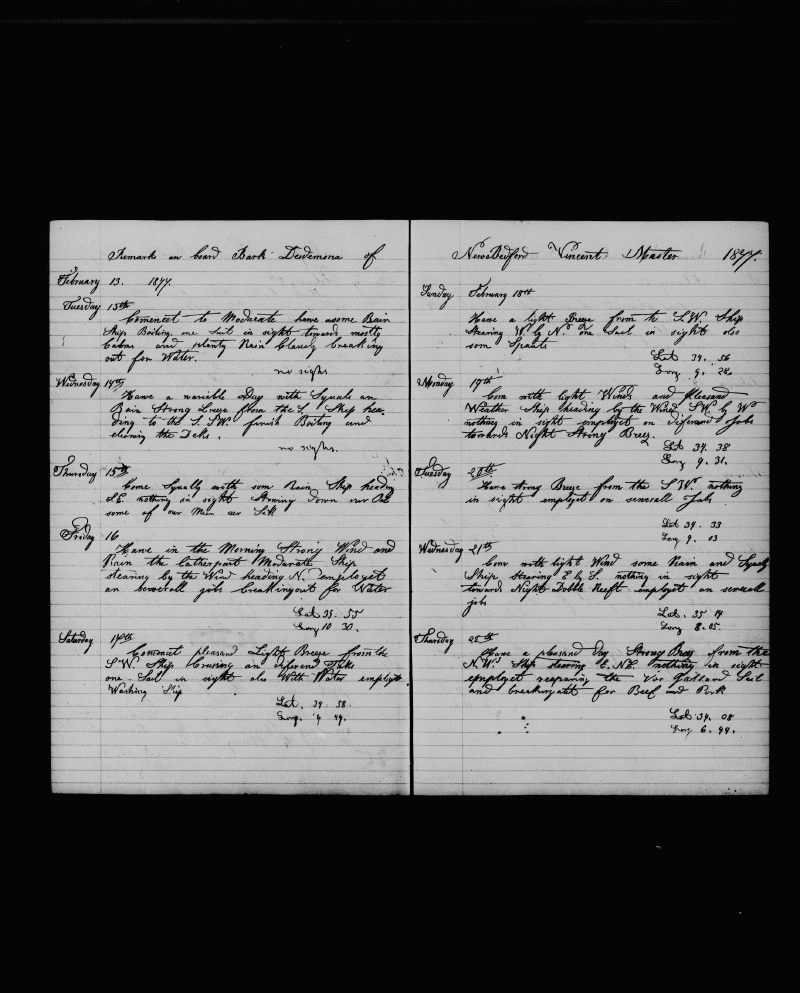 Remarks on board Bark Desdemona of
February 13. 1877.
Tuesday 13th
Comencet to Modairate have a some Rain
Ship Boiling. one Sail in sight towards mostly
Calm and plenty Rain Clously breaking
out for Water.
no sighs
Wednesday 14th
Have a variable Day with Squals an
Rain Strong Breeze from the S. Ship hea-
ding to the S. SW. finish Boiling and
clining the Deks.
no sighs.
Thursday 15th
Come Squally with som Rain Ship heading
SE. nothing in sight Stowing down our Oil
some of our Men are Sik
Friday 16
Have in the Morning Strong Wind and
Rain the latherpart Moderate Ship
stearing by the Wind heading N. employet
on severall jobs breakingout for Water
Lat 35. 55
Long 10 30.
Saturday 17th
Comencet pleasand Light Breeze from the
SW. Ship Crusing on diferend Taks
one Sail in sight also With Water employt
Washing Ship
Lat. 34. 58.
Long. 9 49.
New Bedford Vincent Master 1877.
Sunday February 18th
Have a light Breeze from the S.W. Ship
stearing W. by N. one Sail in sight also
som Spauts
Lat 34. 56
Long 9. 20
Monday 19th
Com with light Winds and pleasand
Weather Ship heading by the Wind SW. by W
nothing in sight employet on Diferend Jobs
towards Night Strong Breez.
Lat 34. 38
Long 9. 31.
Tuesday 20th
Have strong Breeze from the SW. nothing
in sight employet on severall Jobs
Lat 34. 33
Long 9. 03
Wednesday 21th
Com with light Wind some Rain and Squaly
Ship stearing E by S. nothing in sight
towards Night Dobble Reeft employet on severall
jobs
Lat. 35 17
Long 8. 05.
Thursday
Have a pleasand Day Strong Breez from the
N.W. Ship stearing E.NE. nothing in sight
employet repearing the Vor Sail
and breakingout for Beef and Pork
Lat 34. 08
Long 6. 49.